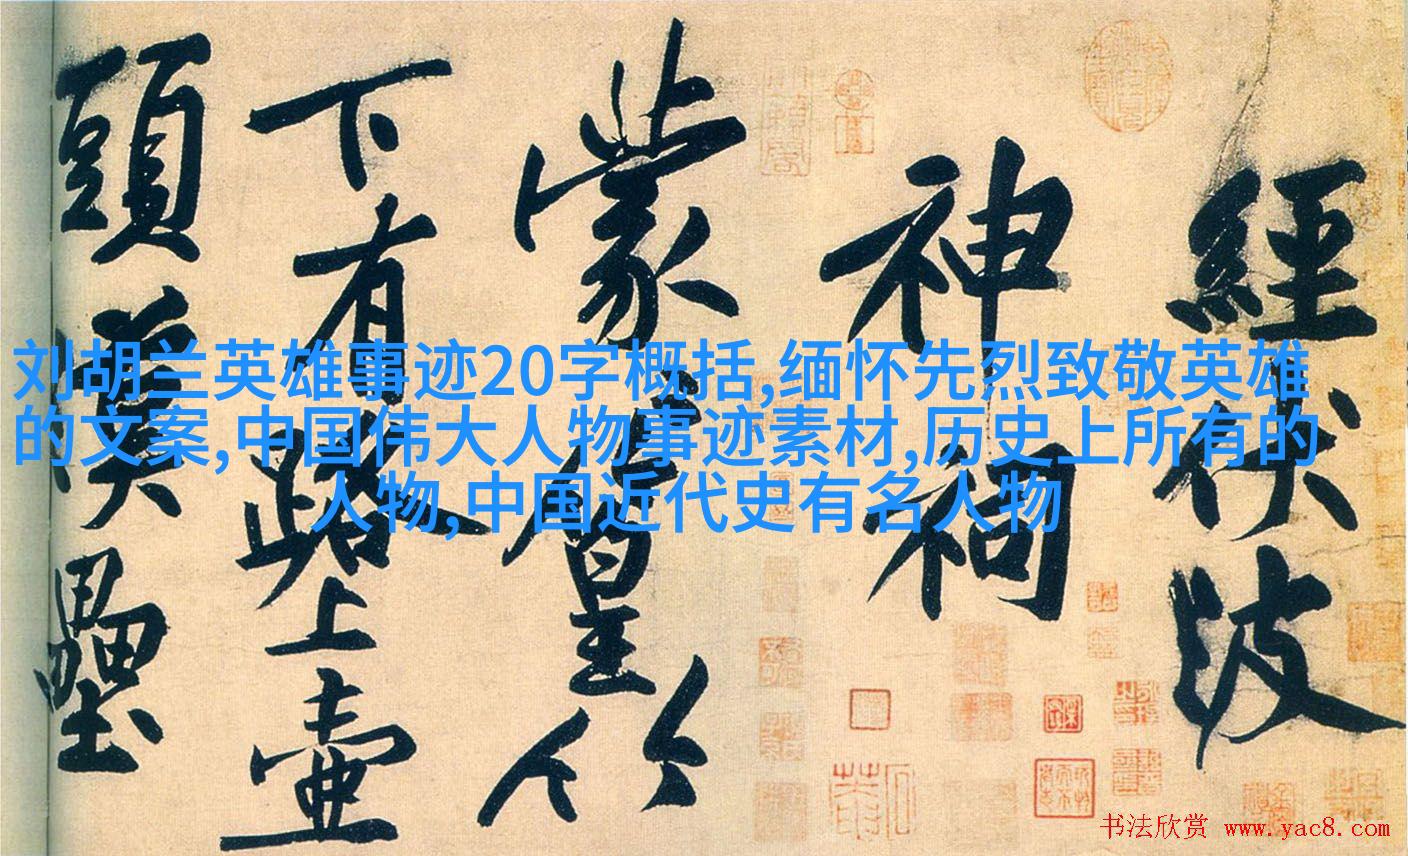 經伏波
神祠
蒙篁竹
下有路上壺
頭漢壘
刘胡兰英雄事迹20字概括,缅怀先烈致敬英雄
的文案,中国伟大人物事迹素材,历史上所有的
人物,中国近代史有名人物
书法欣赏 www.yac8.com